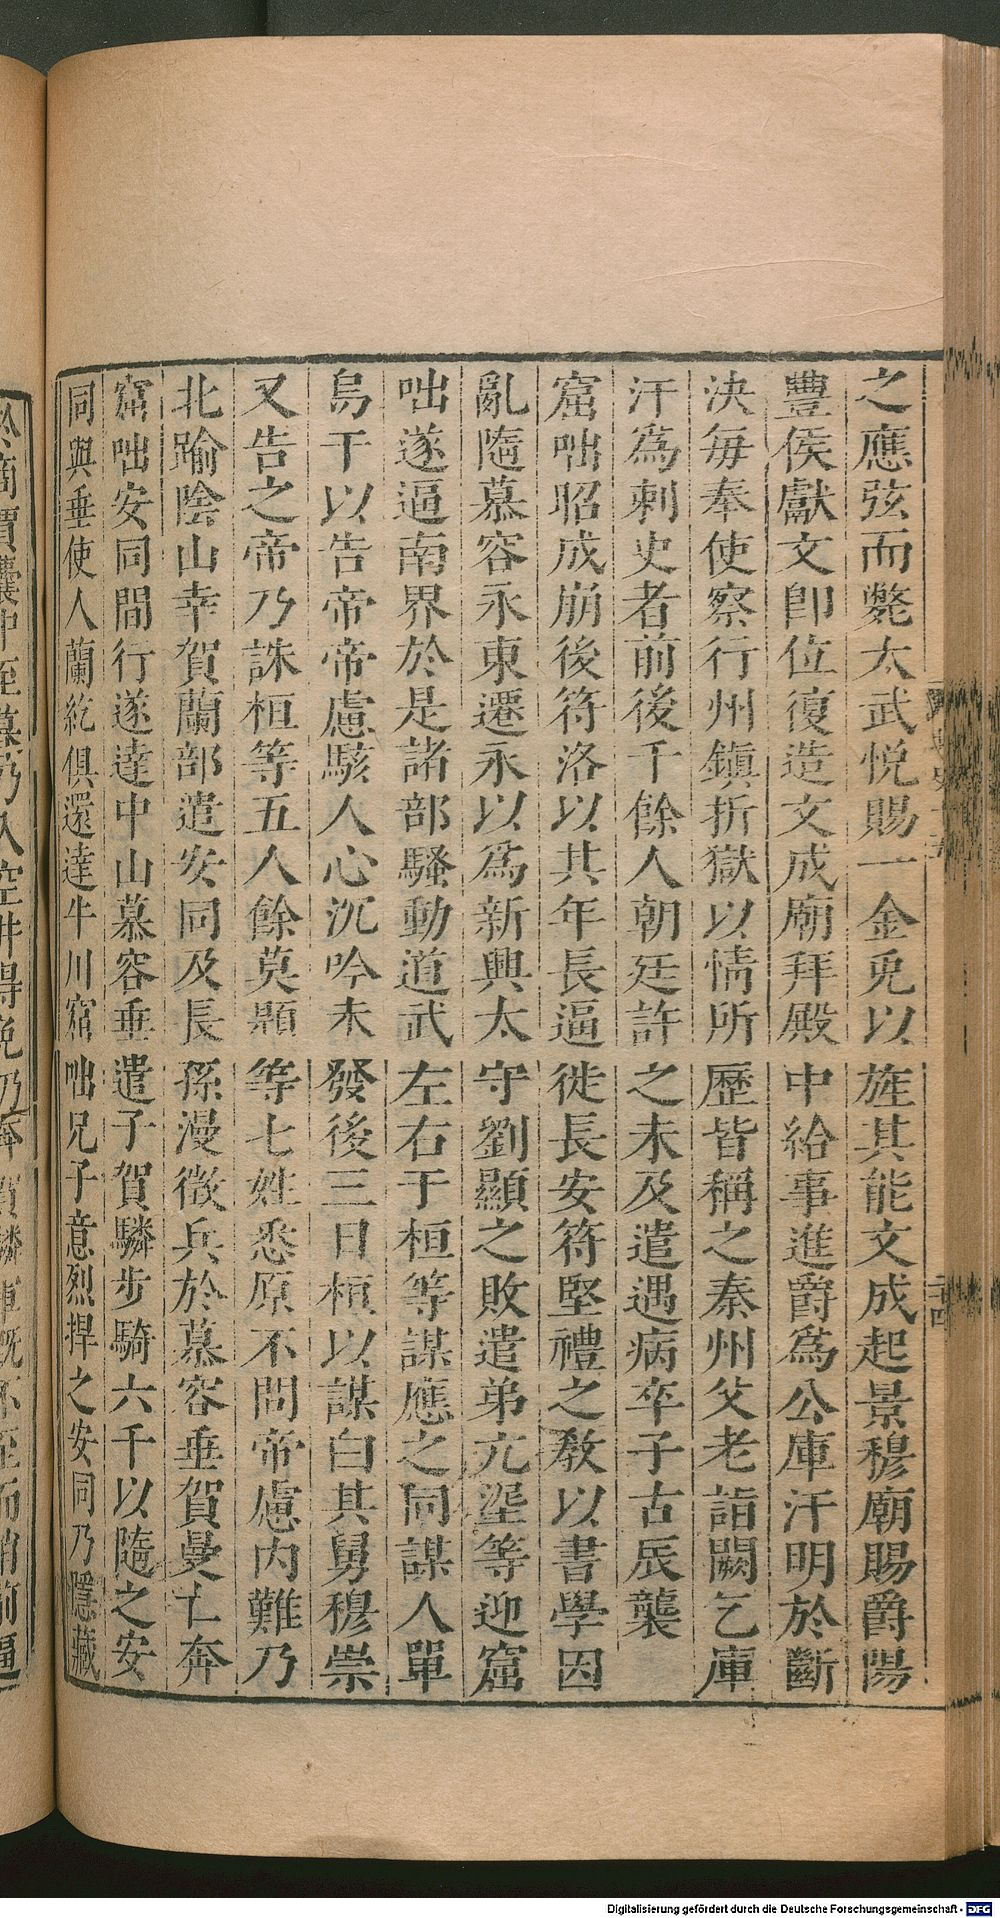 之應弦而斃太武悅賜一金兎以旌其能文成起景穆廟賜爵陽
豐侯獻文卽位復造文成廟拜殿中給事進爵爲公庫汗明於斷
決每奉使察行州鎮折獄以情所歷皆稱之秦州父老詣闕乞庫
汗爲刺史者前後千餘人朝廷許之未及遣遇病卒子古辰襲
窟咄昭成崩後符洛以其年長逼徙長安符堅禮之敎以書學因
亂隨慕容永東遷永以爲新興太守劉顯之敗遣弟亢埿等迎窟
咄遂逼南界於是諸部騷動道武左右于桓等謀應之同謀人單
烏干以告帝帝慮駭人心沉吟未發後三日桓以謀白其舅穆崇
又告之帝乃誅桓等五人餘莫題等七姓悉原不問帝慮內難乃
北踰陰山幸賀蘭部遣安同及長孫漫徵兵於慕容垂賀曼亡奔
窟咄安同間行遂達中山慕容垂遣子賀驎步騎六千以隨之安
同與垂使人蘭紇俱還達牛川窟咄兄子意烈捍之安同乃隱藏
於商賈囊中至暮乃入空井得免乃奔賀驎軍旣不至而稍前逼
二十四
Digitalisierung gefördert durch die Deutsche Forschungsgemeinschaft - DFG